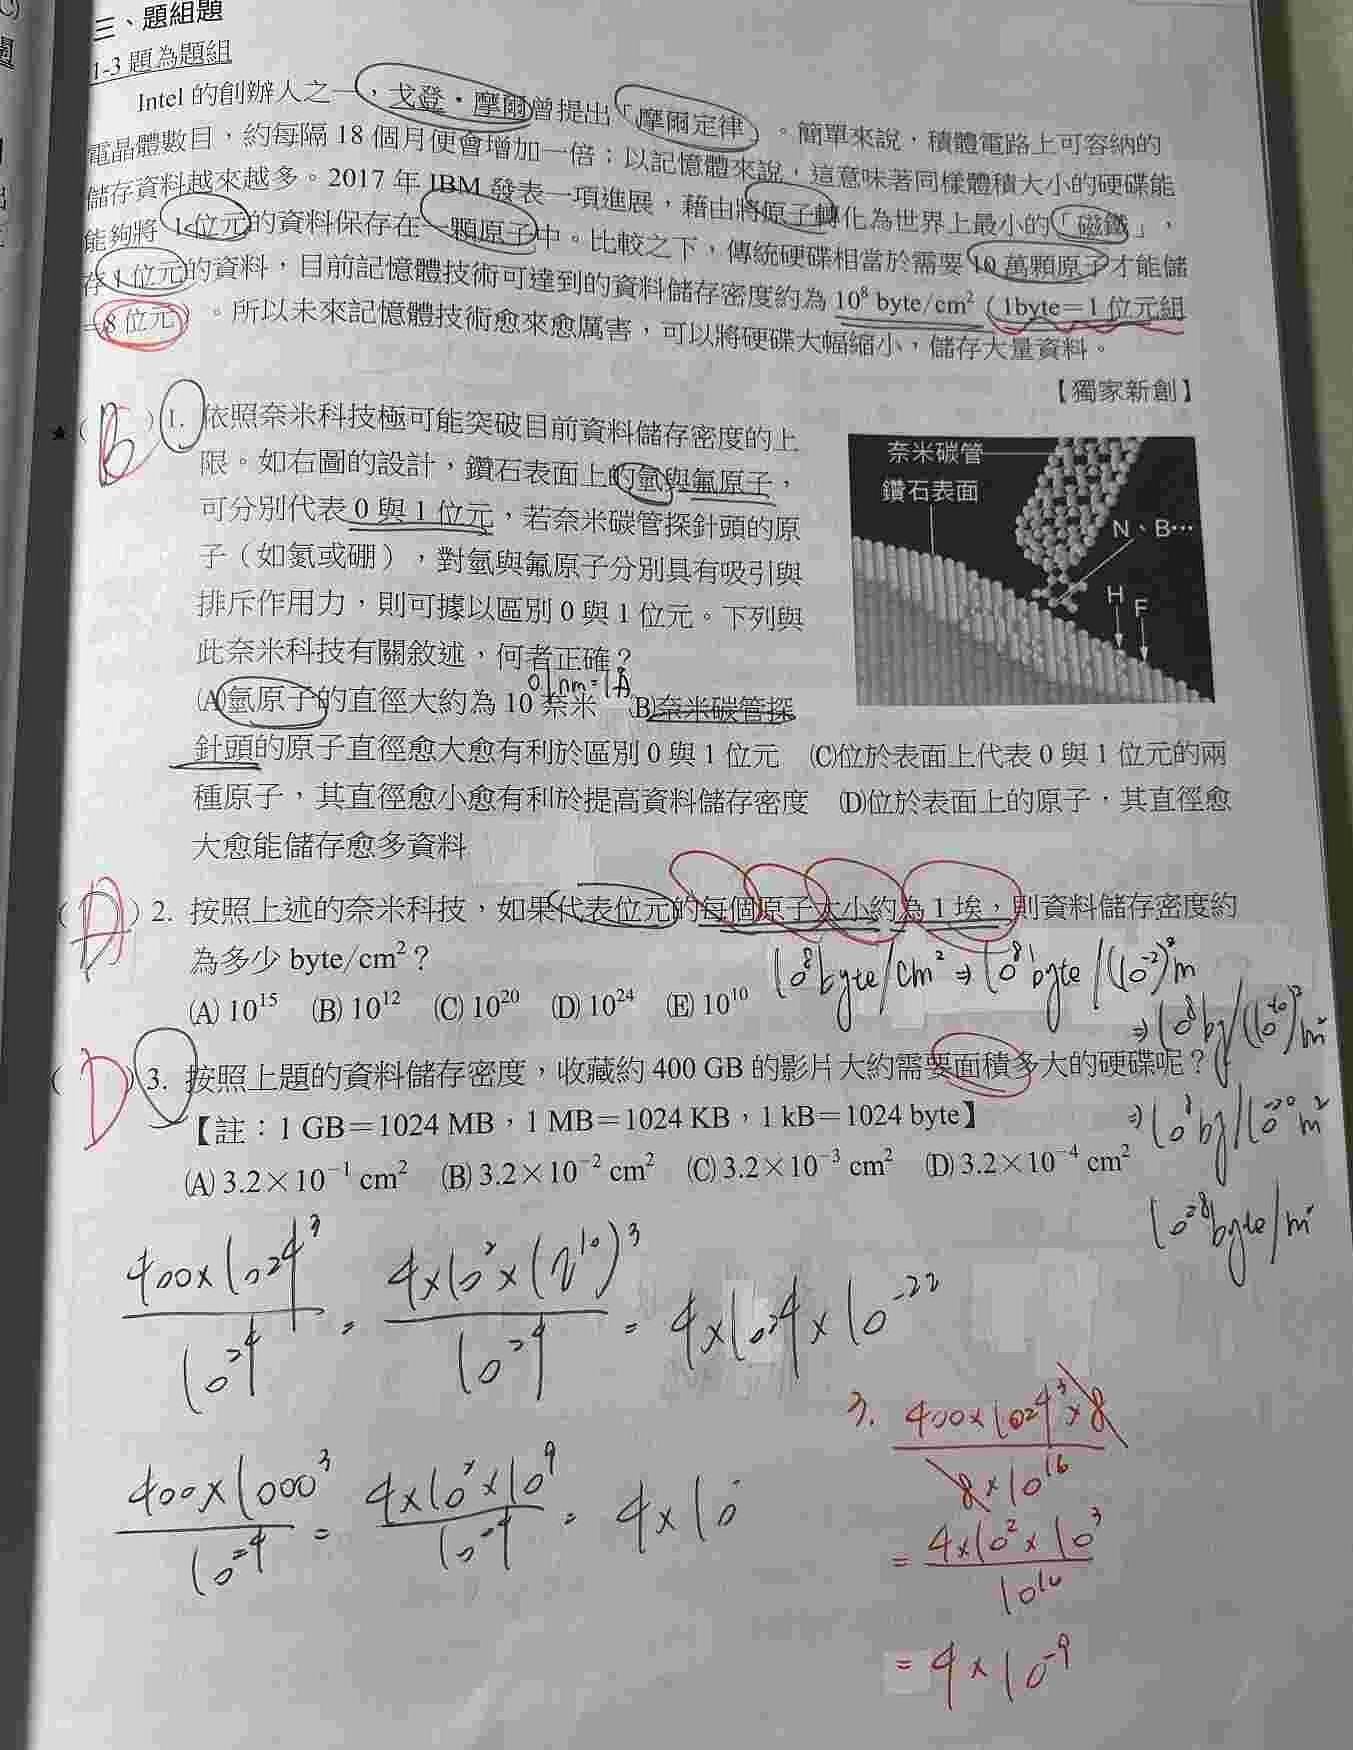 三、題組題
1-3 題為題組
Intel 的創辦人之一，戈登・摩爾曾提出「摩爾定律」。簡單來說，積體電路上可容納的
電晶體數目，約每隔 18 個月便會增加一倍；以記憶體來說，這意味著同樣體積大小的硬碟能
儲存資料越來越多。2017 年 IBM 發表一項進展，藉由將原子轉化為世界上最小的「磁鐵」，
能夠將 1 位元的資料保存在一顆原子中。比較之下，傳統硬碟相當於需要 10 萬顆原子才能儲
存 1 位元的資料，目前記憶體技術可達到的資料儲存密度約為 10⁸ byte/cm²（1byte＝1 位元組
＝8 位元）。所以未來記憶體技術愈來愈厲害，可以將硬碟大幅縮小，儲存大量資料。
【獨家新創】
★（B）1. 依照奈米科技極可能突破目前資料儲存密度的上
限。如右圖的設計，鑽石表面上的氫與氟原子，
可分別代表 0 與 1 位元，若奈米碳管探針頭的原
子（如氮或硼），對氫與氟原子分別具有吸引與
排斥作用力，則可據以區別 0 與 1 位元。下列與
此奈米科技有關敘述，何者正確？
0.1nm=1Å
(A)氫原子的直徑大約為 10 奈米 (B)奈米碳管探
針頭的原子直徑愈大愈有利於區別 0 與 1 位元 (C)位於表面上代表 0 與 1 位元的兩
種原子，其直徑愈小愈有利於提高資料儲存密度 (D)位於表面上的原子，其直徑愈
大愈能儲存愈多資料
奈米碳管
鑽石表面
N、B…
H
F
（ ）2. 按照上述的奈米科技，如果代表位元的每個原子大小約為 1 埃，則資料儲存密度約
為多少 byte/cm²？
(A) 10¹⁵ (B) 10¹² (C) 10²⁰ (D) 10²⁴ (E) 10¹⁰
10⁸byte/cm² ⇒ 10⁸byte/(10⁻²)²m
（D）3. 按照上題的資料儲存密度，收藏約 400 GB 的影片大約需要面積多大的硬碟呢？
【註：1 GB＝1024 MB，1 MB＝1024 KB，1 kB＝1024 byte】
(A) 3.2×10⁻¹ cm² (B) 3.2×10⁻² cm² (C) 3.2×10⁻³ cm² (D) 3.2×10⁻⁴ cm²
10²⁸byte/m²
400×1024³/10²⁴ = 4×10²×(2¹⁰)³/10²⁴ = 4×1024×10⁻²²
400×1000³/10²⁴ = 4×10²×10⁹/10²⁴ = 4×10
3. 400×1024³×8/8×10¹⁶
= 4×10²×10³/10¹⁶
= 4×10⁻⁹